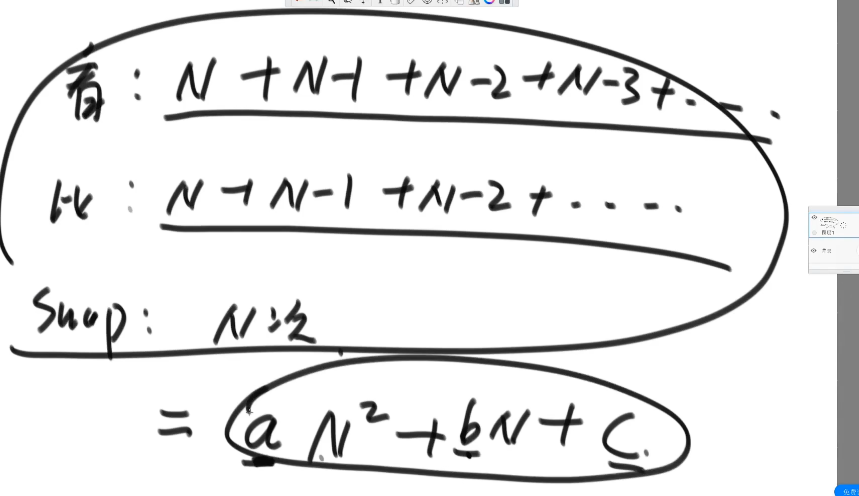 看: N + N-1 + N-2 + N-3 + ......
比: N + N-1 + N-2 + .....
Swap: N次
= a N² + b N + c.